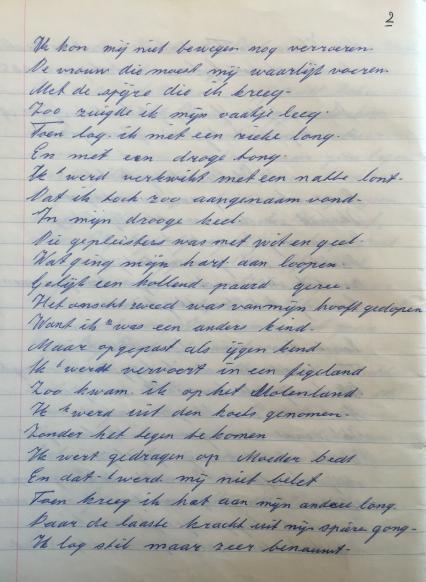 2
Ik kon mij niet bewegen nog verroeren.
De vrouw die moest mij waarlijk voeren.
Met de spijze die ik kreeg.
Zoo zuigde ik mijn vaatje leeg.
Toen lag ik met een zieke long.
En met een droge tong.
Ik werd verkwikt met een natte lont.
Dat ik toch zoo aangenaam vond.
In mijn drooge keel.
Die gepleisters was met wit en geel.
Wat ging mijn hart aan loopen.
Gelijk een hollend paard
Het was van mijn hooft gedopen
Want ik was een anders kind.
Maar opgepast als ijgen kend
Ik werdt vervoert in een
Zoo kwam ik op het Molenland.
Ik werd uit den koets genomen.
Zonder het tegen te komen
Ik wert gedragen op Moeder bedt
En dat werd mij niet belet
Toen kreeg ik het aan mijn andere long.
Daar de laaste kracht uit mijn gong-
Ik log stil maar zeer benauwt.